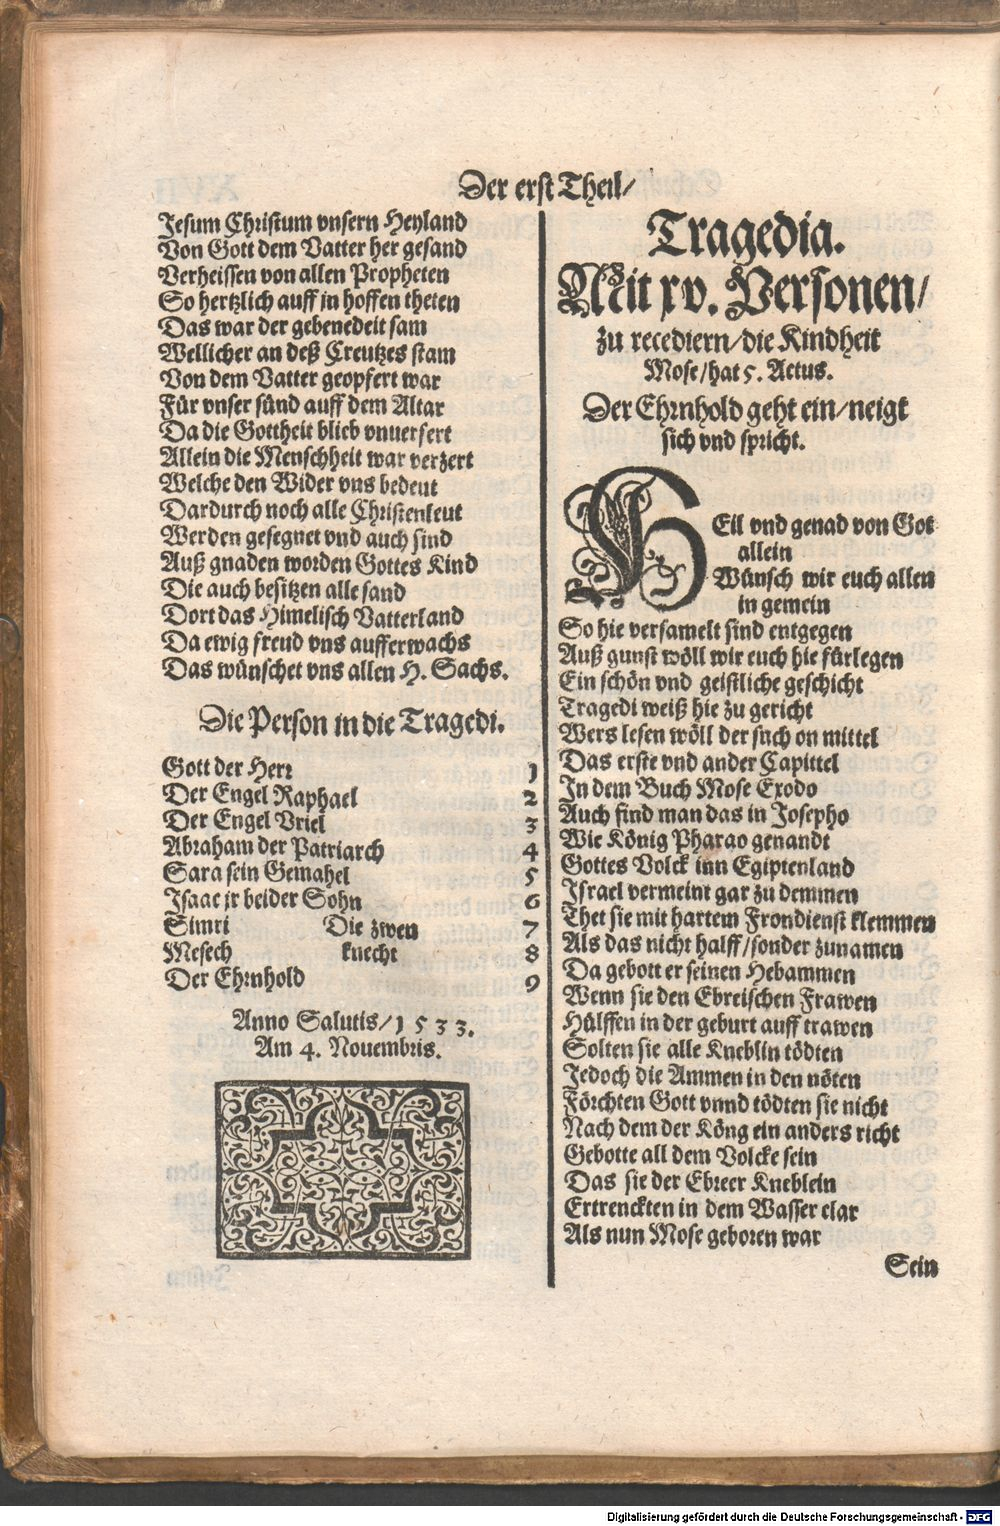 Der erst Theil/
Jesum Christum vnsern Heyland
Von Gott dem Vatter her gesand
Verheissen von allen Propheten
So hertzlich auff in hoffen theten
Das war der gebenedeit sam
Wellicher an deß Creutzes stam
Von dem Vatter geopfert war
Für vnser sünd auff dem Altar
Da die Gottheit blieb vnuersert
Allein die Menschheit war verzert
Welche den Wider vns bedeut
Dardurch noch alle Christenleut
Werden gesegnet vnd auch sind
Auß gnaden worden Gottes Kind
Die auch besitzen alle sand
Dort das Himelisch Vatterland
Da ewig freud vns aufferwachs
Das wünschet vns allen H. Sachs.
Die Person in die Tragedi.
Gott der Herr 1
Der Engel Raphael 2
Der Engel Vriel 3
Abraham der Patriarch 4
Sara sein Gemahel 5
Isaac jr beider Sohn 6
Simri Die zwen 7
Mesech knecht 8
Der Ehrnhold 9
Anno Salutis/1533.
Am 4. Nouembris.
Tragedia.
Mit xv. Personen/
zu recediern/die Kindheit
Mose/hat 5. Actus.
Der Ehrnhold geht ein/neigt
sich vnd spricht.
HEil vnd genad von Got
allein
Wünsch wir euch allen
in gemein
So hie versamelt sind entgegen
Auß gunst wöll wir euch hie fürlegen
Ein schön vnd geistliche geschicht
Tragedi weiß hie zu gericht
Wers lesen wöll der such on mittel
Das erste vnd ander Capittel
In dem Buch Mose Exodo
Auch find man das in Josepho
Wie König Pharao genandt
Gottes Volck inn Egiptenland
Israel vermeint gar zu demmen
Thet sie mit hartem Frondienst klemmen
Als das nicht halff/sonder zunamen
Da gebott er seinen Hebammen
Wenn sie den Ebreischen Frawen
Hülffen in der geburt auff trawen
Solten sie alle Kneblin tödten
Jedoch die Ammen in den nöten
Förchten Gott vnnd tödten sie nicht
Nach dem der Köng ein anders richt
Gebotte all dem Volcke sein
Das sie der Ebreer Kneblein
Ertrenckten in dem Wasser clar
Als nun Mose geboren war
Sein
Digitalisierung gefördert durch die Deutsche Forschungsgemeinschaft - DFG